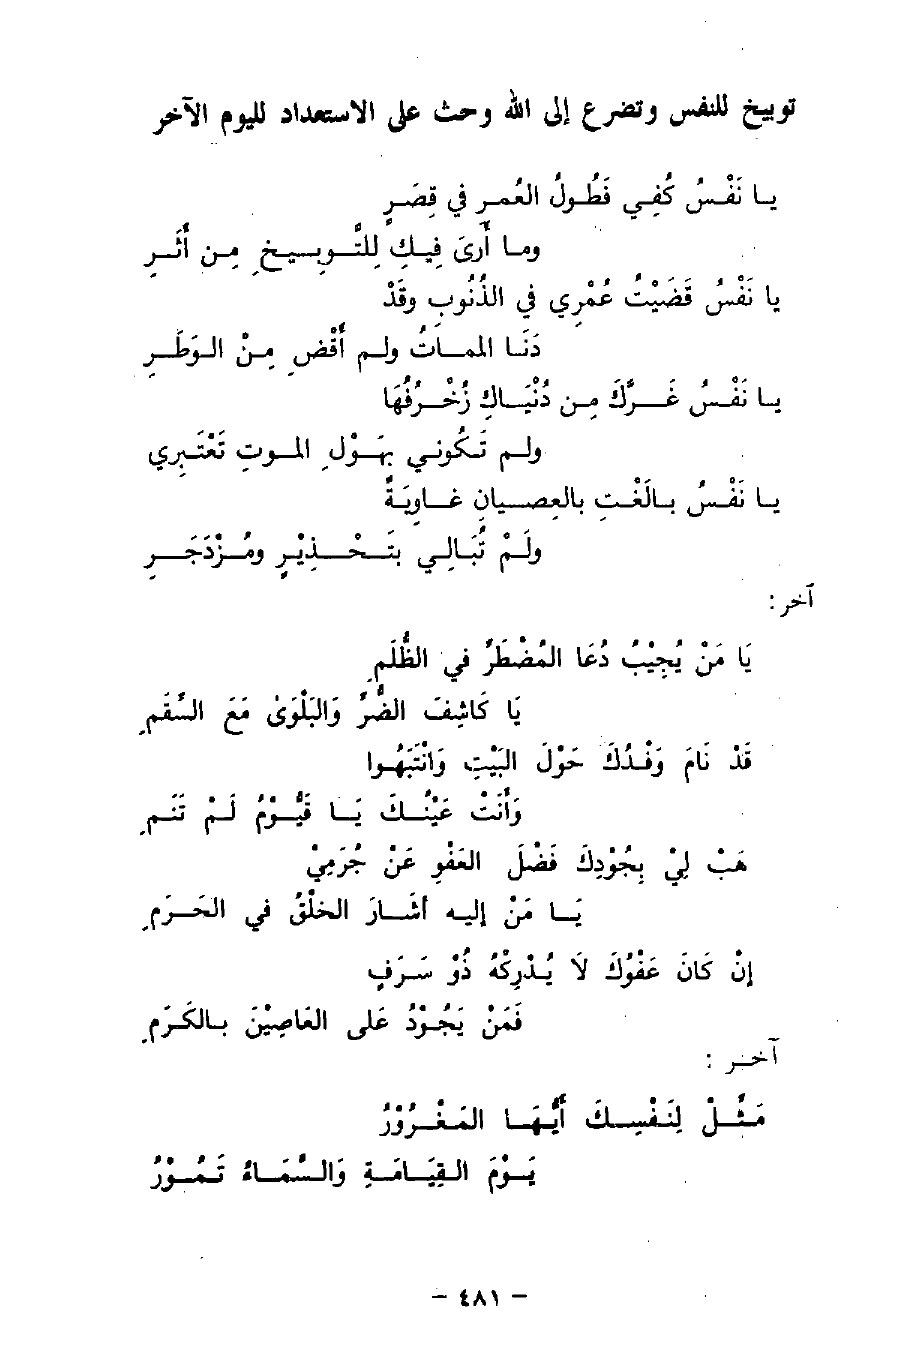 توبيخ للنفس وتضرع إلى الله وحث على الاستعداد لليوم الآخر
يا نَفْسُ كُفِي فَطُولُ العُمرِ في قِصَرٍ
وما أَرىَ فِيكِ لِلتَّوبِيخِ مِن أَثَرِ
يا نَفْسُ قَضَيْتُ عُمْرِي في الذُنُوبِ وقَدْ
دَنَا المماتُ ولم أَقْضِ مِنْ الوَطَرِ
يا نَفْسُ غَرَّكِ مِن دُنْيَاكِ زُخْرُفُهَا
ولم تَكُونِي بِهَوْلِ الموتِ تَعْتَبِري
يا نَفْسُ بالَغْتِ بالعِصيانِ غاوِيَةً
ولَمْ تُبَالِي بتَحْذِيْرٍ ومُزْدَجَرِ
آخر :
يَا مَنْ يُجِيْبُ دُعَا المُضْطَرُ في الظُّلَمِ
يَا كَاشِفَ الضُّرِّ وَالبَلْوَىْ مَعَ السَّقَمِ
قَدْ نَامَ وَفْدُكَ حَوْلَ البَيْتِ وَانْتَبَهُوا
وَأَنْتْ عَيْنُكَ يَا قَيُّوْمُ لَمْ تَنَمِ
هَبْ لِيْ بِجُوْدِكَ فَضْلَ العَفْوِ عَنْ جُرَمِيْ
يَا مَنْ إليه أشَارَ الخَلْقُ في الحَرَمِ
إنْ كَانَ عَفْوُكَ لاَ يُدْرِكْهُ ذُوْ سَرَفٍ
فَمَنْ يَجُوْدُ عَلى العَاصِيْنَ بالكَرَمِ
آخر :
مَثِّلْ لِنَفْسِكَ أَيُّهَا المَغْرُوْرُ
يَوْمَ القِيَامَةِ وَالسَّمَاءُ تَمُوْرُ
- ٤٨١ -